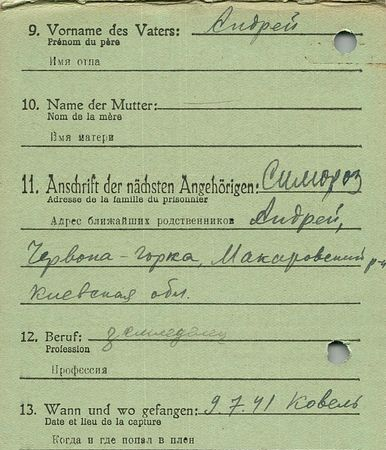 9. Vorname des Vaters: Андрей
Prénom du père
Имя отца
10. Name der Mutter:
Nom de la mère
Имя матери
11. Anschrift der nächsten Angehörigen: Симороз
Adresse de la famille du prisonnier
Адрес ближайших родственников Андрей,
Червона-горка, Макаровский р-н
Киевская обл.
12. Beruf: земледелец
Profession
Профессия
13. Wann und wo gefangen: 9.7.41 Ковель
Date et lieu de la capture
Когда и где попал в плен